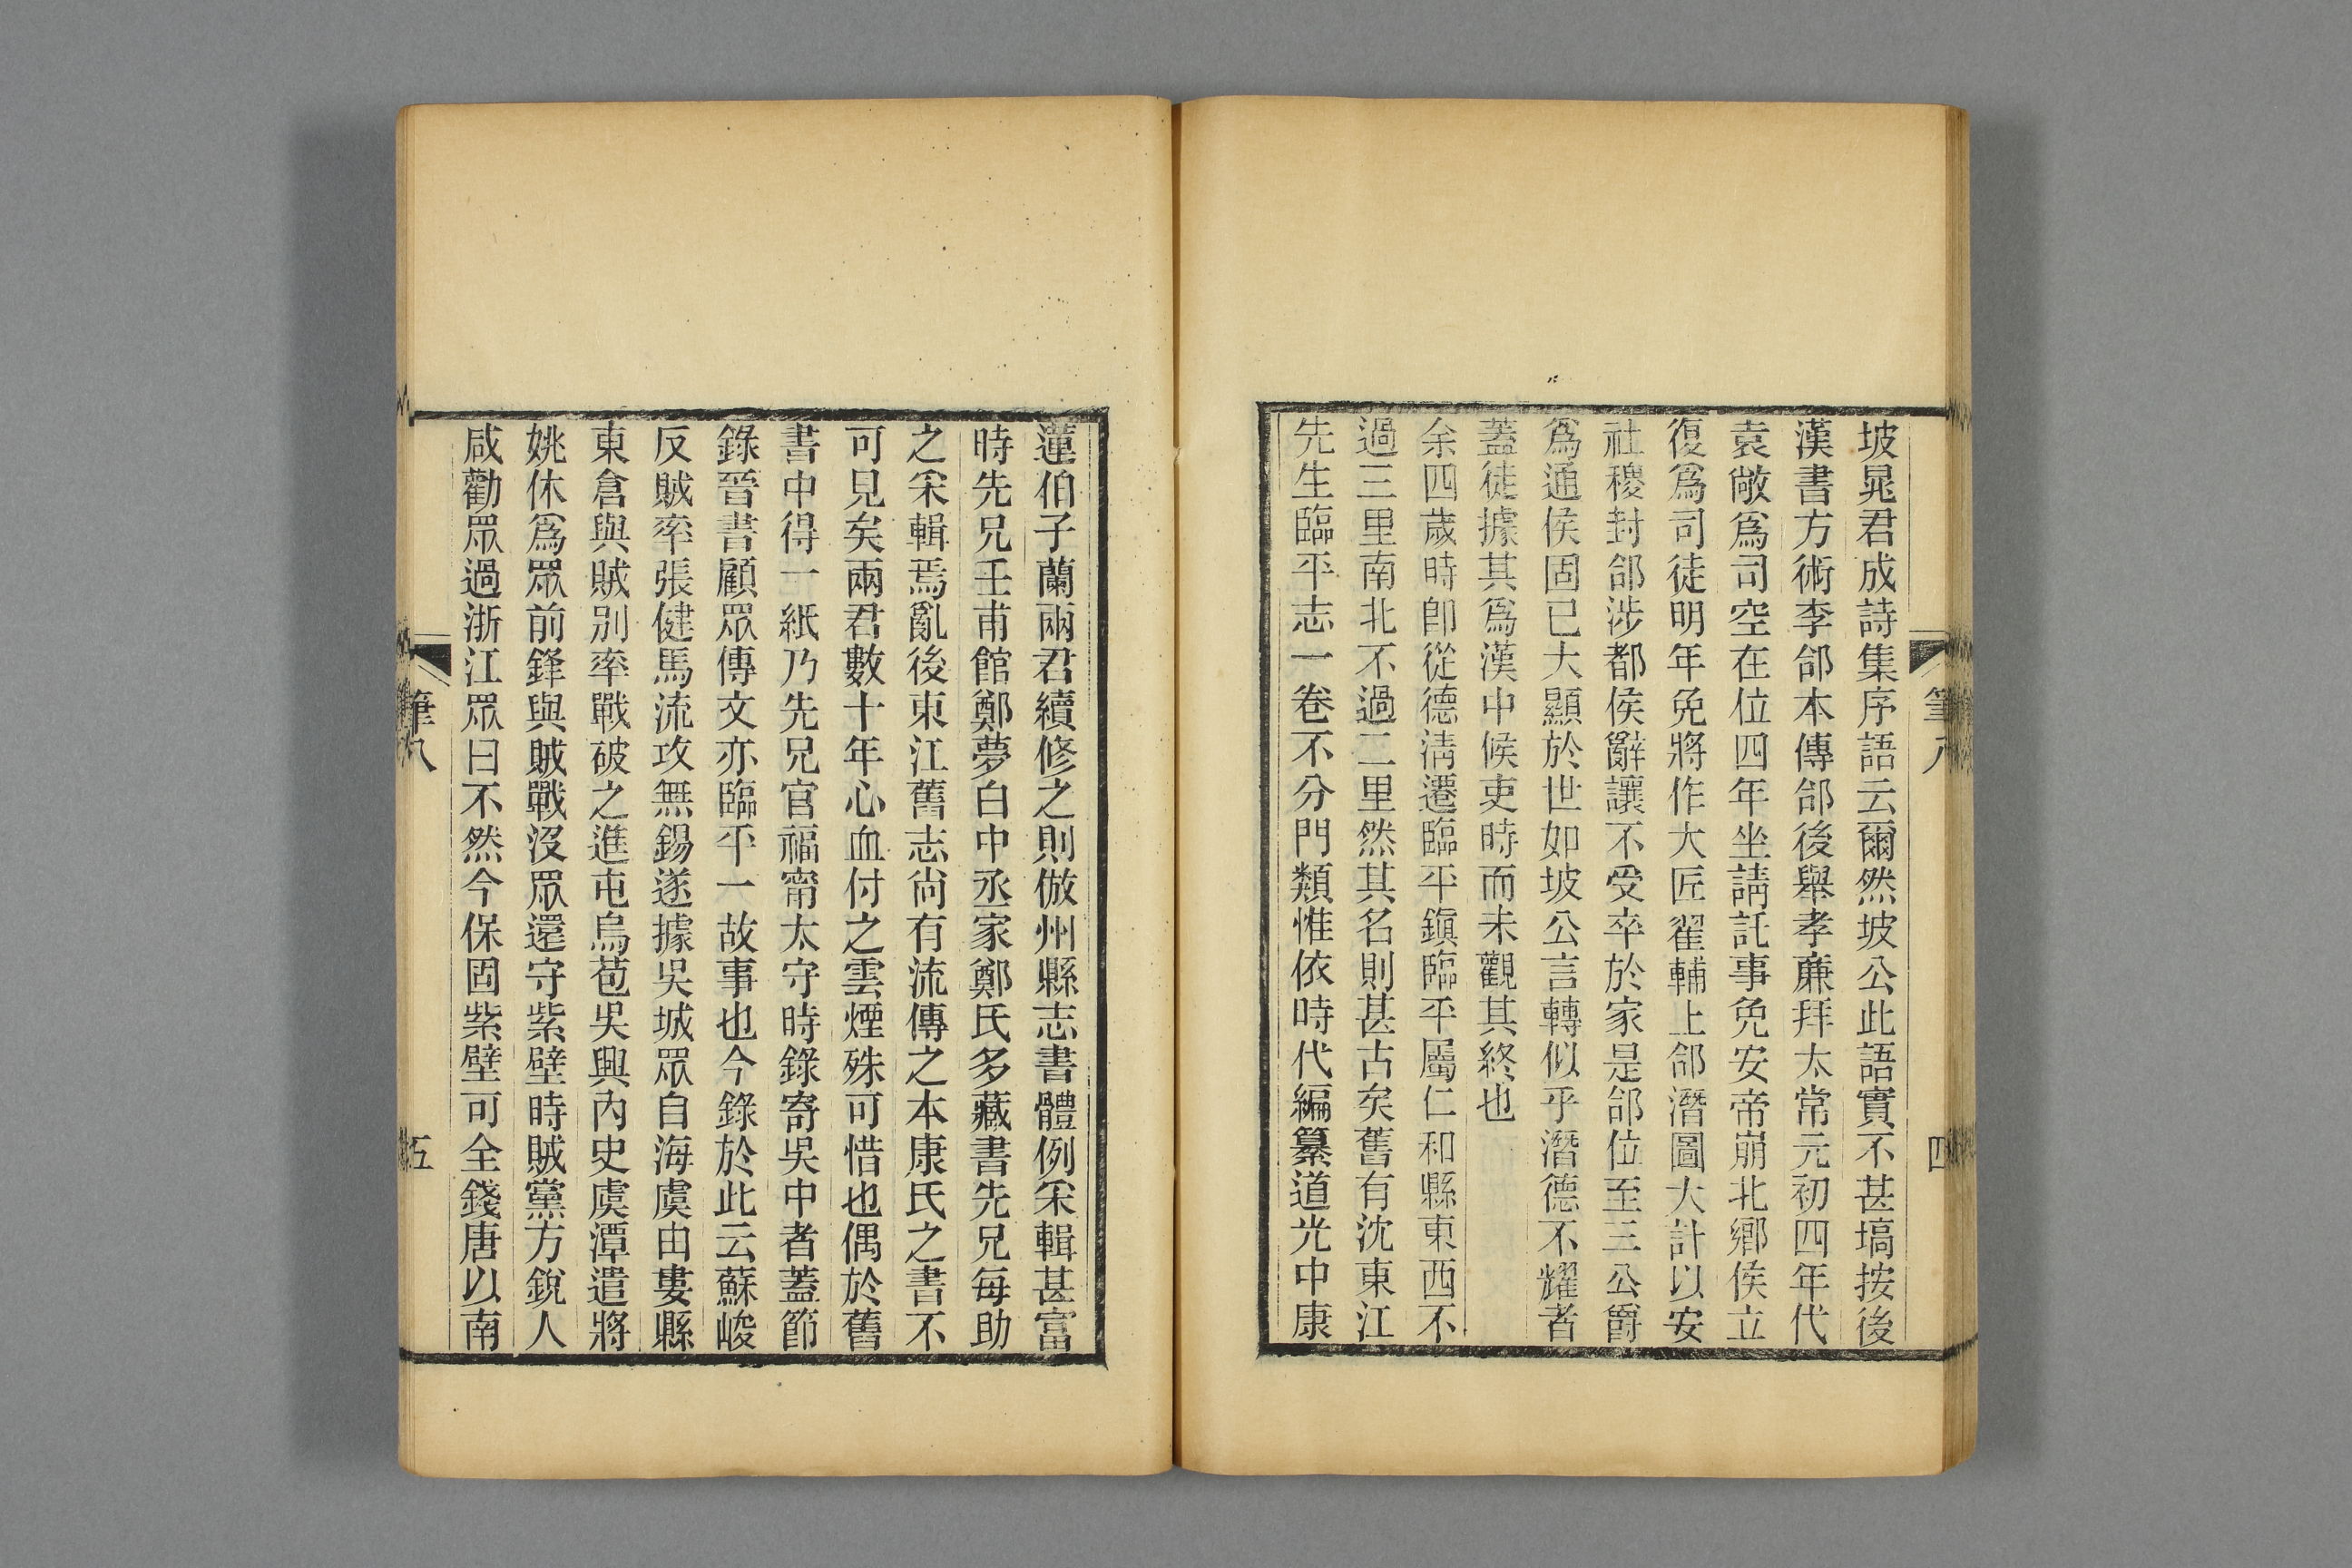 坡晁君成詩集序語云爾然坡公此語實不甚塙按後
漢書方術李郃本傳郃後舉孝廉拜太常元初四年代
袁敞爲司空在位四年坐請託事免安帝崩北鄉侯立
復爲司徒明年免將作大匠翟輔上郃潛圖大計以安
社稷封郃涉都侯辭讓不受卒於家是郃位至三公爵
爲通侯固已大顯於世如坡公言轉似乎潛德不耀者
蓋徒據其爲漢中候吏時而未觀其終也
余四歲時卽從德淸遷臨平鎭臨平屬仁和縣東西不
過三里南北不過二里然其名則甚古矣舊有沈東江
先生臨平志一卷不分門類惟依時代編纂道光中康
筆八
四
蓮伯子蘭兩君續修之則倣州縣志書體例采輯甚富
時先兄壬甫館鄭夢白中丞家鄭氏多藏書先兄每助
之采輯焉亂後東江舊志尙有流傳之本康氏之書不
可見矣兩君數十年心血付之雲煙殊可惜也偶於舊
書中得一紙乃先兄官福甯太守時錄寄吳中者蓋節
錄晉書顧眾傳文亦臨平一故事也今錄於此云蘇峻
反賊率張健馬流攻無錫遂據吳城眾自海虞由婁縣
東倉與賊別率戰破之進屯烏苞吳興內史虞潭遣將
姚休爲眾前鋒與賊戰沒眾還守紫壁時賊黨方銳人
咸勸眾過浙江眾曰不然今保固紫壁可全錢唐以南
筆八
五